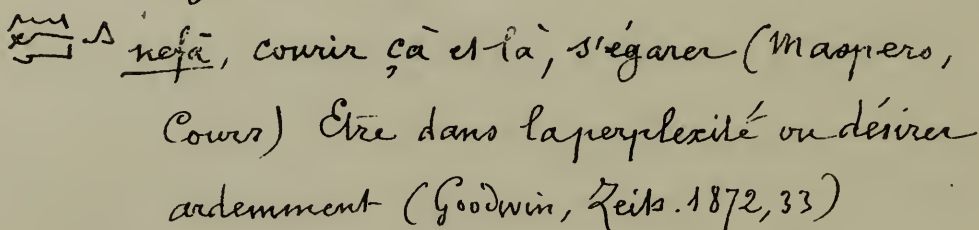 nefā, courir çà et là, s'égarer (Maspero,
Cours) Etre dans la perplexité ou désirer
ardemment (Goodwin, Zeits. 1872, 33)